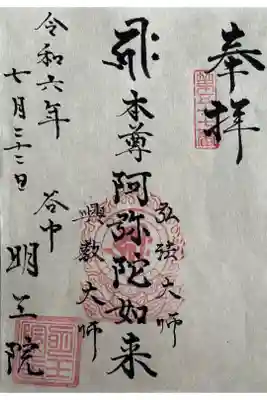 奉拝
第五十七番
弘法大師
本尊阿弥陀如来
興教大師
谷中 明王院
令和六年
七月二十二日